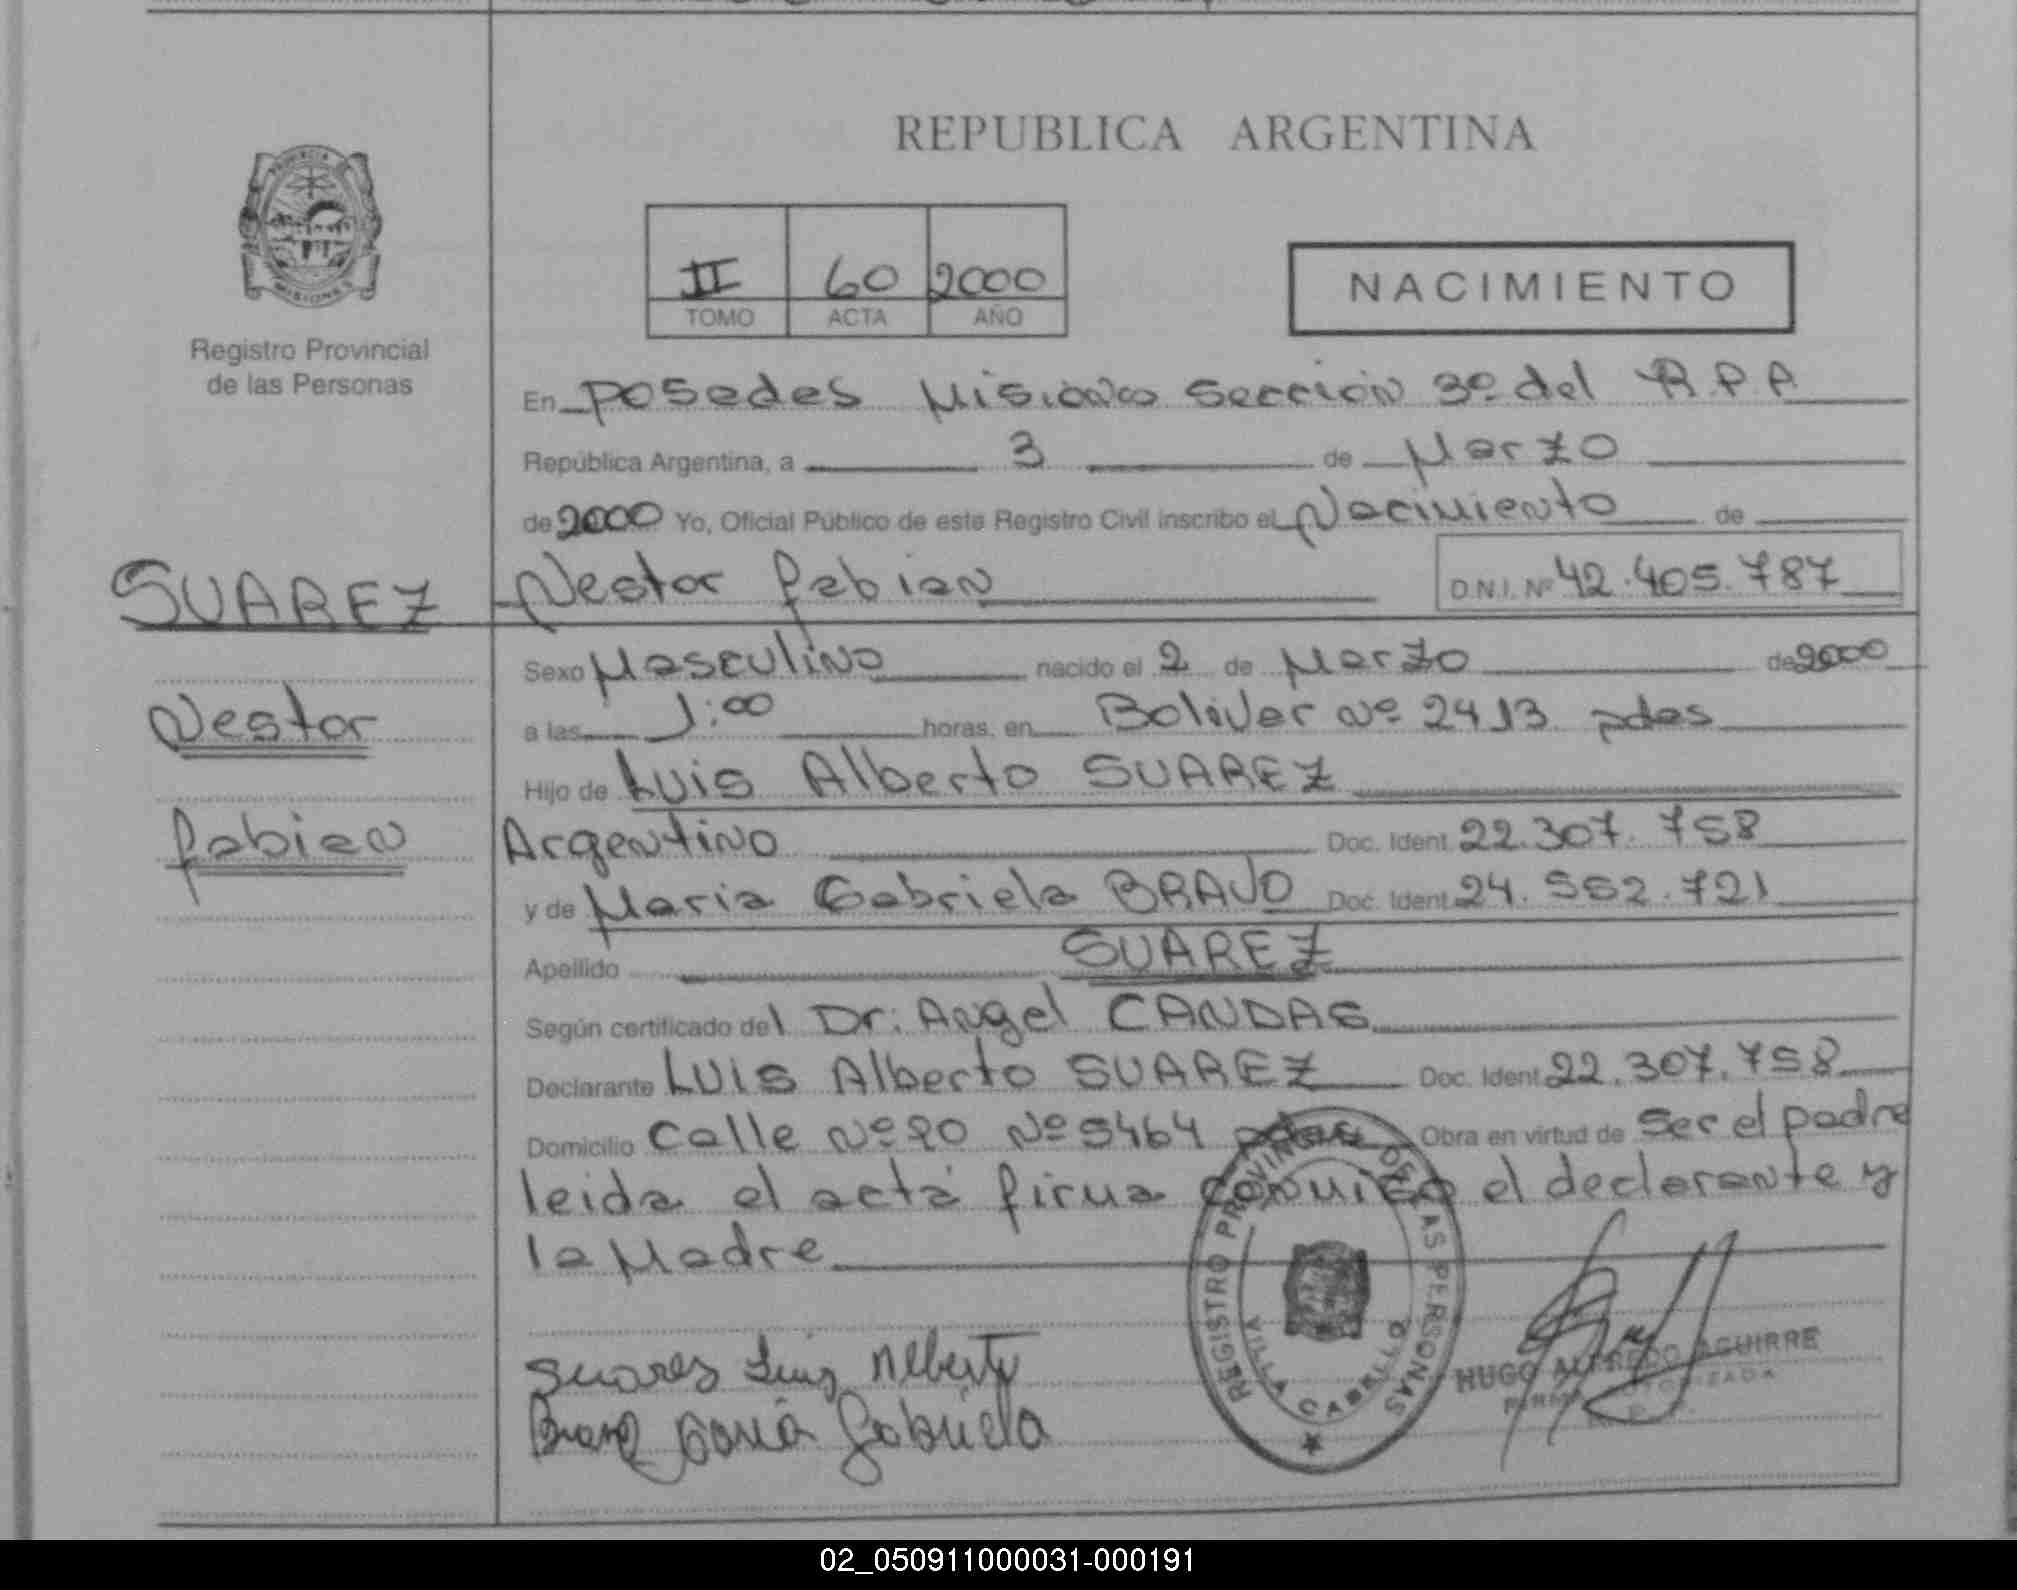 REPUBLICA ARGENTINA
PROVINCIA DE
MISIONES
Registro Provincial
de las Personas
II 60 2000
TOMO ACTA AÑO
NACIMIENTO
En posadas Misiones Sección 3º del R.P.P
República Argentina, a 3 de Marzo
de 2000 Yo, Oficial Público de este Registro Civil inscribo el Nacimiento de
SUAREZ Nestor fabian D.N.I. Nº 42.405.787
Sexo Masculino nacido el 2 de Marzo de 2000
Nestor
a las 1:00 horas, en Bolivar Nº 2413 pdas
Hijo de Luis Alberto SUAREZ
fabian
Argentino Doc. Ident. 22.307.758
y de Maria Gabriela BRAVO Doc. Ident. 24.552.721
Apellido SUAREZ
Según certificado del Dr: Angel CANDAS
Declarante LUIS Alberto SUAREZ Doc. Ident. 22.307.758
Domicilio Calle Nº 20 Nº 5464 pdas Obra en virtud de Ser el padre
leida el acta firma conmigo el declarante y
la Madre
REGISTRO PROVINCIAL DE LAS PERSONAS
VILLA CABELLO
Suares Luis Alberto
Bravo Maria Gabriela
HUGO ALFREDO AGUIRRE
FIRMA AUTORIZADA
02_050911000031-000191